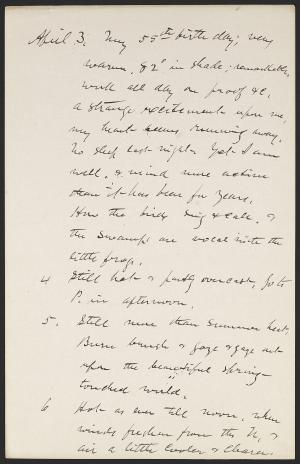 April 3. My 55th birth day; very
warm, 82° in shade; remarkable,
work all day on proof &c.
a strange excitement upon me,
my heart seems running away.
No sleep last night. Yet I am
well, & mind more active
than it has been for years.
How the birds sing & call, &
the swamps are vocal with the
little frogs.
4 Still hot & partly overcast, go to
P. in afternoon.
5. Still more than summer heat,
Burn brush & gaze & gaze out
upon the beautiful spring-
touched world.
6 Hot as ever till noon, when
winds freshen from the N, &
air a little cooler & clearer.